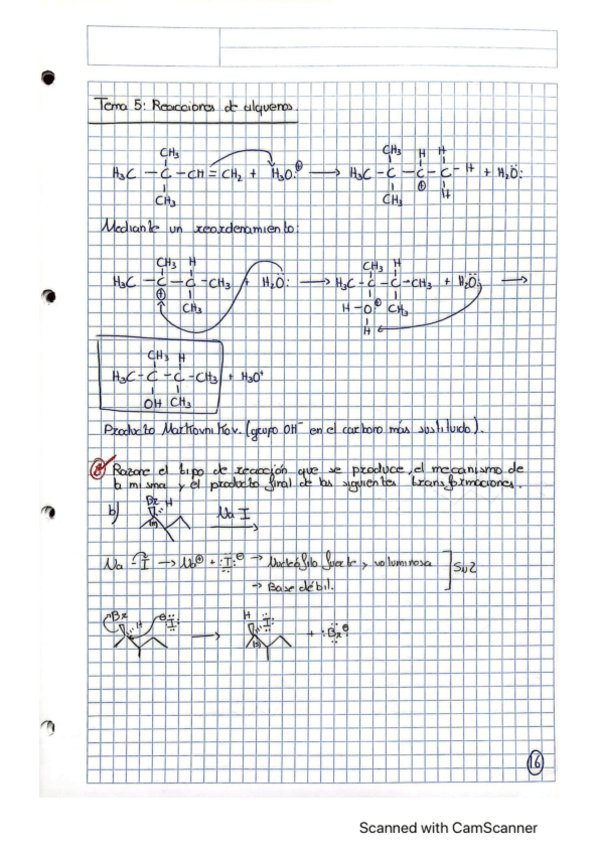 Tema 5: Reacciones de alquenos.
CH₃ CH₃ H H
H₃C - C - CH = CH₂ + H₃O:⊕ → H₃C - C - C - C - H + H₂Ö:
CH₃ CH₃ ⊕ H
Mediante un reordenamiento:
CH₃ H CH₃ H
H₃C - C - C - CH₃ + H₂Ö: → H₃C - C - C - CH₃ + H₂Ö: →
⊕ CH₃ H - O:⊕ CH₃
H
CH₃ H
H₃C - C - C - CH₃ + H₃O⁺
OH CH₃
Producto Markovnikov. (grupo OH⁻ en el carbono más sustituido).
8 Razone el tipo de reacción que se produce, el mecanismo de
la misma y el producto final de las siguientes transformaciones.
b) Br H Na I
(R)
Na - I → Na⊕ + :I:⊖ → Nucleófilo fuerte y voluminosa
→ Base débil. ] SN2
Br H ⊖:I: → H :I: + :Br:⊖
16
Scanned with CamScanner